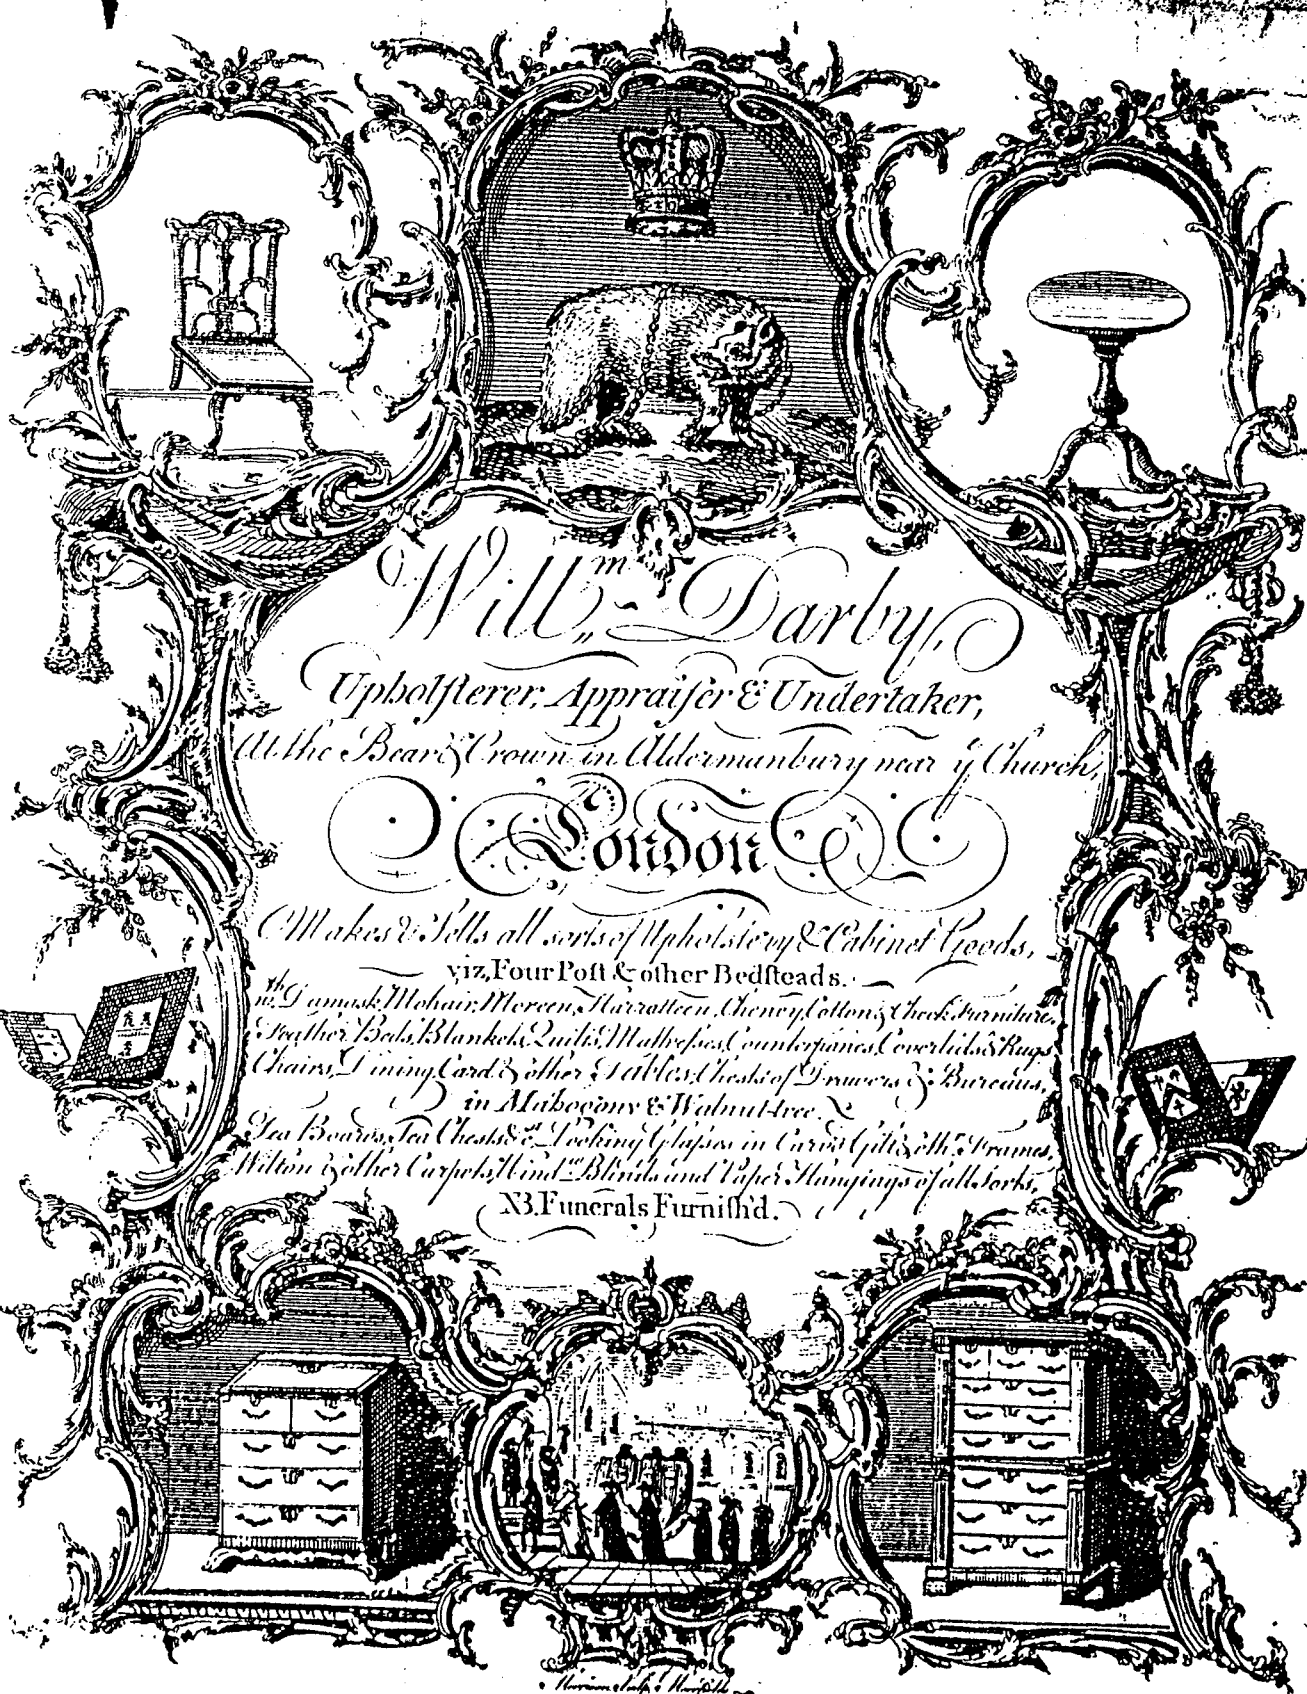 Will.m Darby,
Upholſterer, Appraiſer & Undertaker,
At the Bear & Crown in Aldermanbury near ye Church,
London
Makes & Sells all sorts of Upholstery & Cabinet Goods,
viz, Four Poſt & other Bedſteads.
wth. Damask, Mohair, Moreen, Harratteen, Cheney, Cotton & Check Furniture,
Feather Beds, Blankets, Quilts, Mattreſses, Counterpanes, Coverlids & Rugs,
Chairs, Dining, Card & other Tables, Chests of Drawers & Bureaus,
in Mahogony & Walnut-tree.
Tea Boards, Tea Chests &c. Looking Glaſses in Carv'd Gilt & othr. Frames,
Wilton & other Carpets, Windw. Blinds and Paper Hangings of all Sorts,
NB. Funerals Furniſh'd.